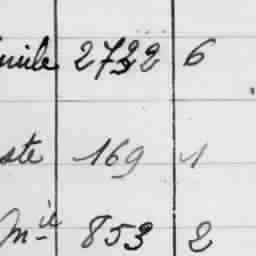 2722 6
ste 169 1
Mie 853 2